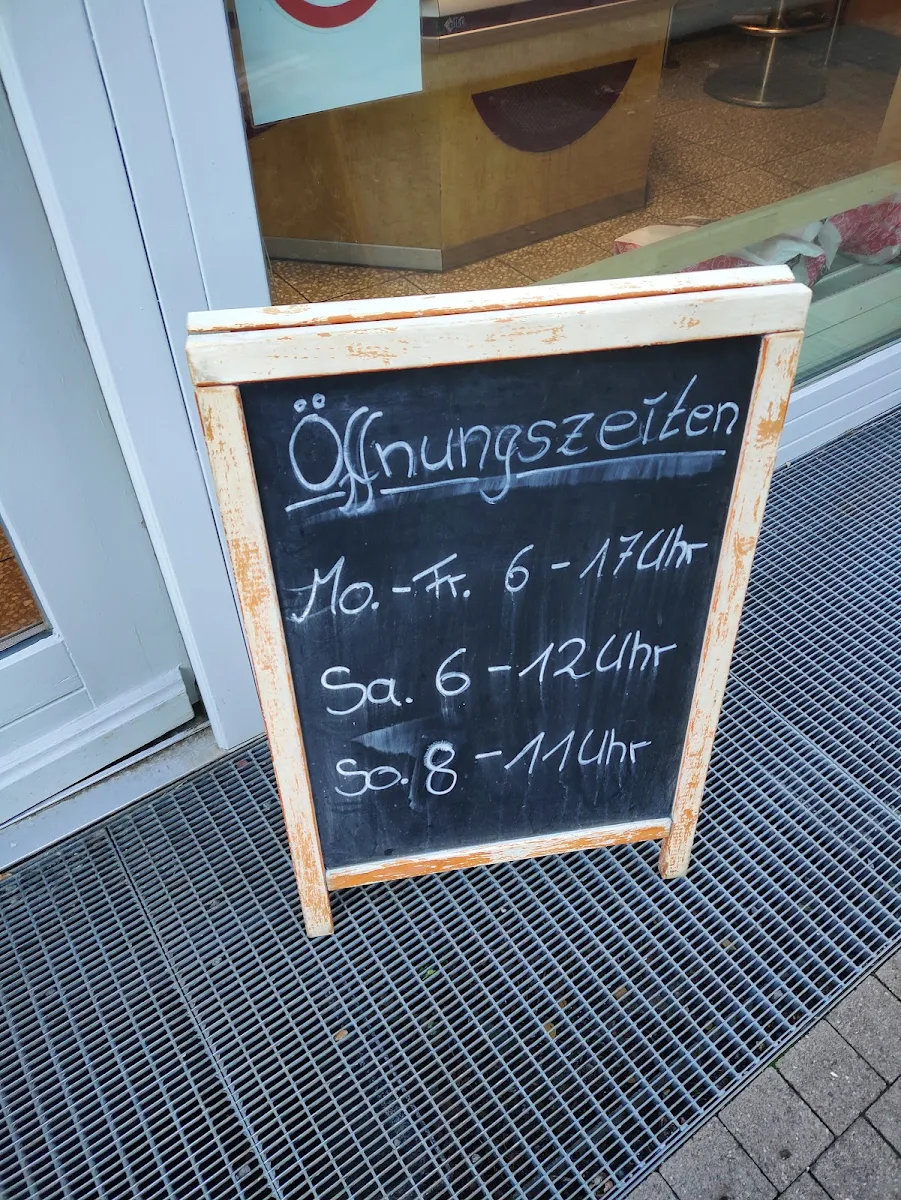 Öffnungszeiten
Mo.-Fr. 6 - 17 Uhr
Sa. 6 - 12 Uhr
So. 8 - 11 Uhr